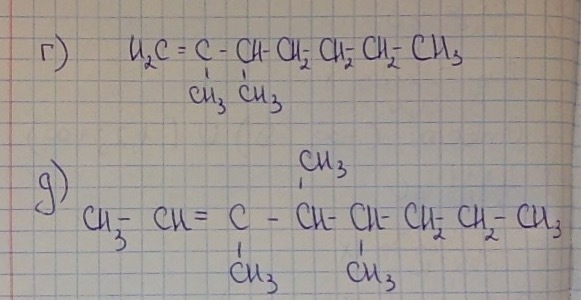 г) H₂C = C - CH - CH₂ - CH₂ - CH₂ - CH₃
CH₃ CH₃
CH₃
д) CH₃ - CH = C - CH - CH - CH₂ - CH₂ - CH₃
CH₃ CH₃